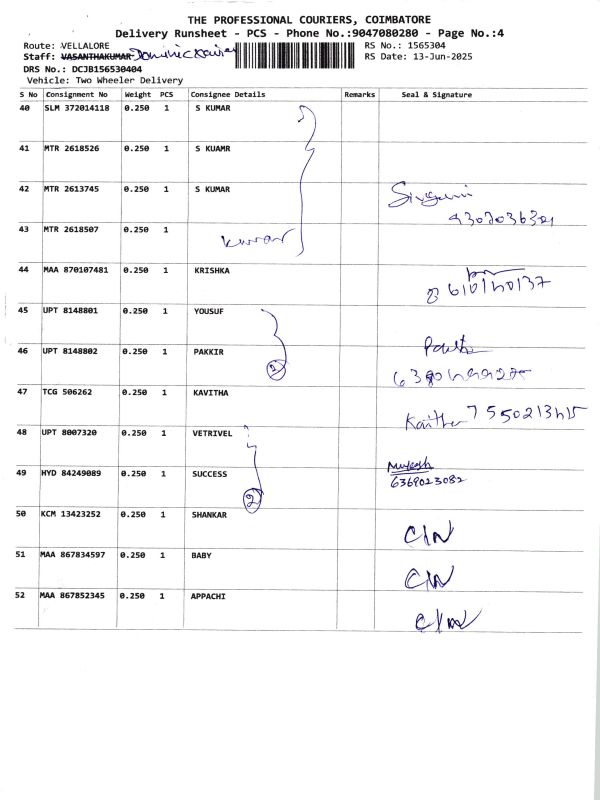 THE PROFESSIONAL COURIERS, COIMBATORE
Delivery Runsheet - PCS - Phone No.:9047080280 - Page No.:4
Route: VELLALORE
RS No.: 1565304
Staff: VASANTHAKUMAR Dominic
RS Date: 13-Jun-2025
DRS No.: DCJB156530404
Vehicle: Two Wheeler Delivery
S No Consignment No Weight PCS Consignee Details Remarks Seal & Signature
40 SLM 372014118 0.250 1 S KUMAR
41 MTR 2618526 0.250 1 S KUAMR
42 MTR 2613745 0.250 1 S KUMAR
43 MTR 2618507 0.250 1 kumar
44 MAA 870107481 0.250 1 KRISHKA
45 UPT 8148801 0.250 1 YOUSUF
46 UPT 8148802 0.250 1 PAKKIR 2
47 TCG 506262 0.250 1 KAVITHA
48 UPT 8007320 0.250 1 VETRIVEL
49 HYD 84249089 0.250 1 SUCCESS 2 Mukesh
6369023082
50 KCM 13423252 0.250 1 SHANKAR
51 MAA 867834597 0.250 1 BABY
52 MAA 867852345 0.250 1 APPACHI